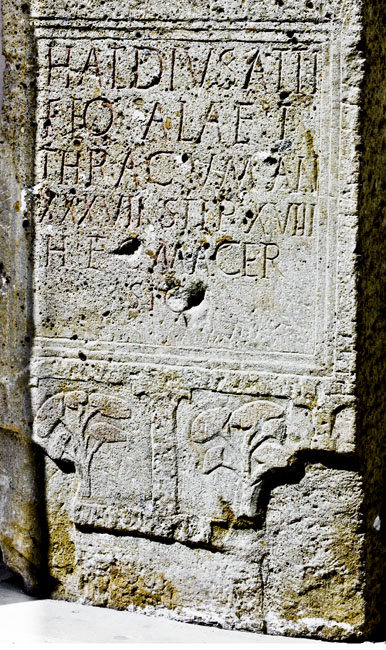 HALDIVS ATTI
F EQ ALAE I
THRACVM AN
XXXVII STIP XVIII
H E MACER